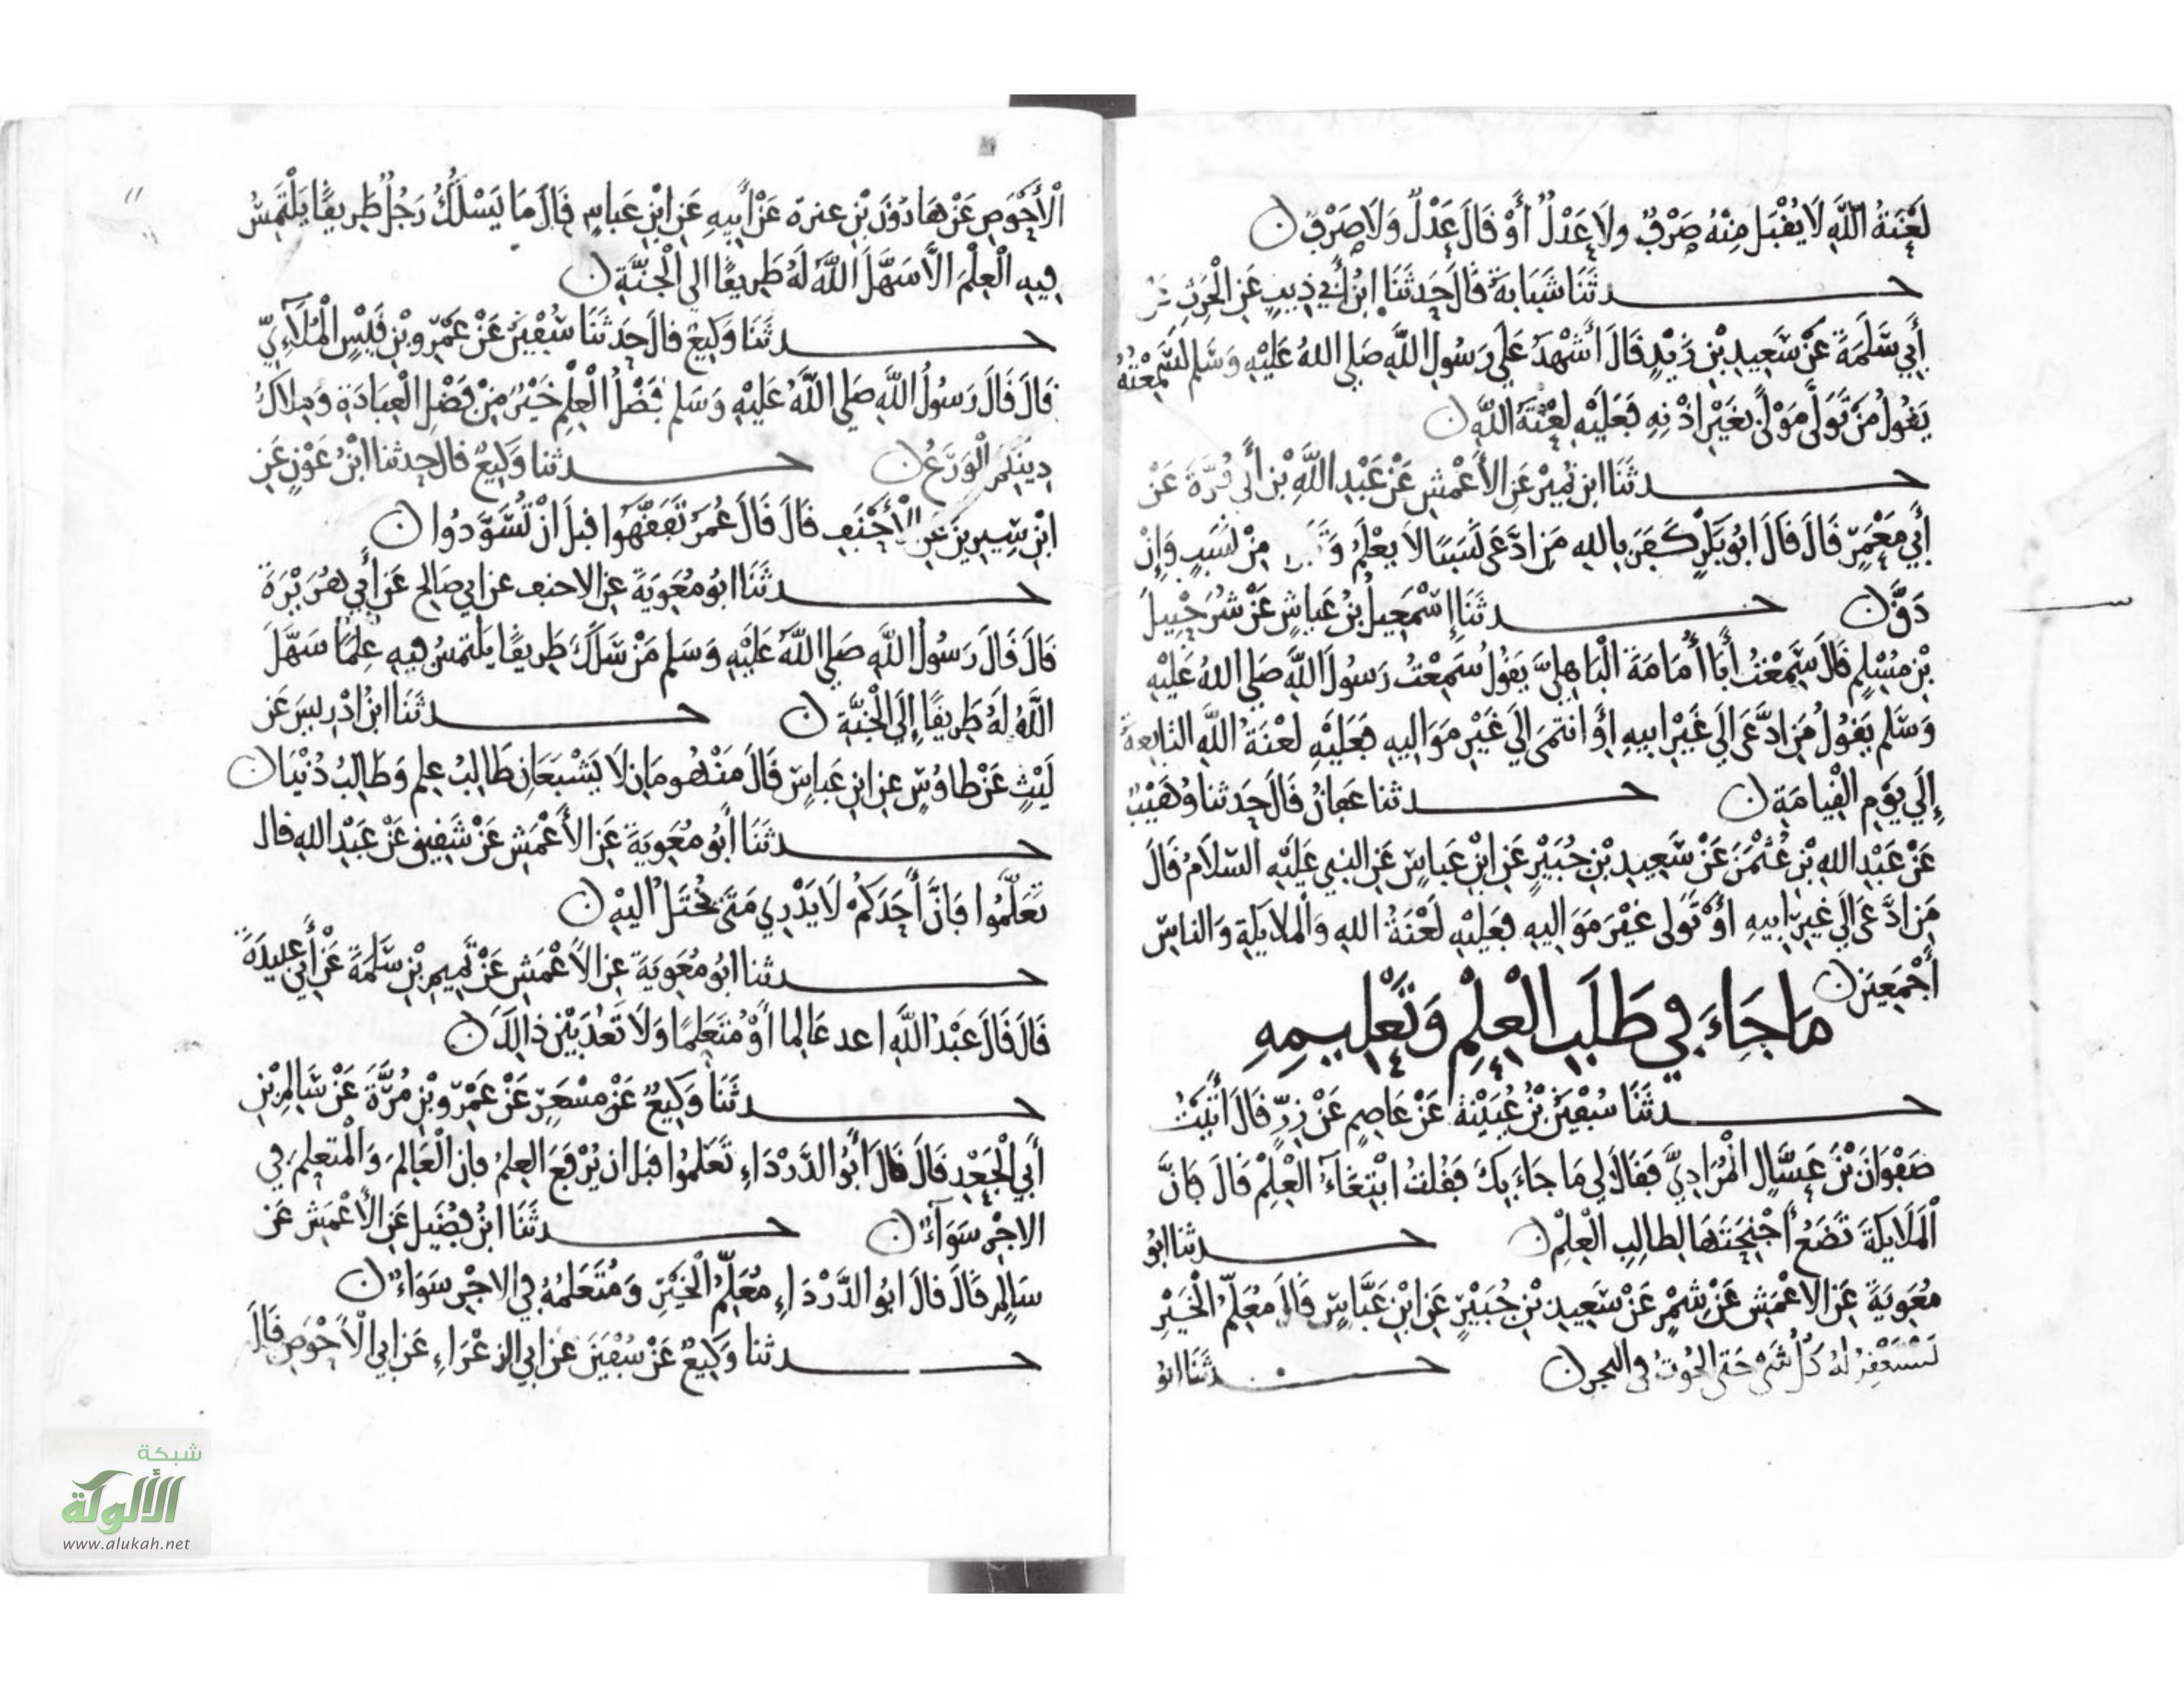 لَعْنَةُ اللَّهِ لَا يُقْبَل مِنْهُ صَرْفٌ ولَا عَدْلٌ أَوْ قَالَ عَدْلٌ وَلَا صَرْفٌ ن
حـدثَنَا شَبَابَةُ قَالَ حَدثَنَا ابْنُ أَبِي ذِيبٍ عَنِ الْحَرِثِ عَنْ
أَبِي سَلَمَةَ عَنْ سَعِيدِ بْنِ زَيْدٍ قَالَ أَشْهَدُ عَلَى رَسُولِ اللَّهِ صَلى اللهُ عَلَيْهِ وَسَلم لَسَمِعْتُهُ
يَقُولُ مَنْ تَوَلَّى مَوْلًى بِغَيْرِ اذْنِهِ فَعَلَيْهِ لَعْنَةُ اللَّهِ ن
حـدثَنَا ابن نُمَيْر عَنِ الأَعْمَشِ عَنْ عَبْدِ اللَّهِ بْنِ أَبِي قُرَّةَ عَنْ
أَبِي مَعْمَرٍ قَالَ قَالَ ابُو بَكْرٍ كَفَرَ بِاللهِ مَنِ ادَّعَى نَسَبًا لَا يعْلَمُ وَتَبَرَّأَ مِنْ نَسَبٍ وَإِنْ
دَقَّ ن حـدثَنَا إِسْمَعِيلُ بْنُ عَيَاشٍ عَنْ شُرَحْبِيلَ
بْنِ مُسْلِمٍ قَالَ سَمِعْتُ أَبَا أُمَامَةَ الْبَاهِلِيَّ يَقُولُ سَمِعْتُ رَسُولَ اللَّهِ صَلى اللهُ عَلَيْهِ
وَسَلم يَقُولُ مَنِ ادَّعَى إِلَى غَيْرِ ابيهِ أَوِ انْتَمَى إِلَى غَيْرِ مَوَاليهِ فَعَلَيْهِ لَعْنَةُ اللَّهِ التابِعةُ
إِلَى يَوْمِ الْقِيامَةِ ن حـدثنا عَفانُ قَالَ حَدَثنا وُهَيْبٌ
عَنْ عَبْدِ اللهِ بْنِ عُثْمَنَ عَنْ سَعِيدِ بْنِ جُبَيْرٍ عَنِ ابْنِ عَباسٍ عَنِ النبِي عَلَيْهِ السّلَامُ قَالَ
مَنِ ادَّعَى إِلَى غيرِ ابيهِ أَوْ تَوَلى غيْرَ مَوَاليهِ فعَلَيْهِ لَعْنَةُ اللهِ وَالْملايكَةِ وَالناسِ
أَجْمَعِينَ ن
مَا جَاءَ فِي طَلَبِ الْعِلْمِ وَتَعْلِيمِهِ
حـدثَنَا سُفْيَنُ بْنُ عُيَيْنَةَ عَنْ عَاصِمٍ عَنْ زِرٍّ قَالَ أَتَيْتُ
صَفْوَانَ بْنَ عَسَّالٍ الْمُرَادِيَّ فَقَالَ لِي مَا جَاءَ بِكَ فَقُلتُ ابْتِغَاءُ الْعِلْمِ قَالَ فَإِنَّ
الْمَلَايكَةَ تَضَعُ أَجْنِحَتَهَا لِطالِبِ الْعِلْمِ ن حـدثنا ابُو
مُعَوِيَةَ عَنِ الاعْمَشِ عَنْ شِمْرٍ عَنْ سَعِيدِ بْنِ جُبَيْرٍ عَنِ ابْنِ عَبَّاسٍ قَالَ مُعَلِمُ الْخَيْرِ
تَسْتَغْفِرُ لَهُ كُلُّ شَيْءٍ حَتى الحُوتُ فى البحرِ ن حـدثَنَا ابُو
الْأَحْوَصِ عَنْ هَارُونَ بْنِ عنترة عَنْ أَبِيهِ عَنِ ابْنِ عَباسٍ قَالَ مَا يَسْلُكُ رَجُلٌ طَرِيقًا يَلْتَمِسُ
فِيهِ الْعِلْمَ الَّا سَهَّلَ اللَّهُ لَهُ طَرِيقًا الى الْجَنَّةِ ن
حـدثَنَا وَكِيعٌ قالَ حَدثَنَا سُفْيَنُ عَنْ عَمْرِو بْنِ قَيْسٍ الْمُلَائِيِّ
قَالَ قَالَ رَسُولُ اللَّهِ صَلى اللَّهُ عَلَيْهِ وَسَلم فَضْلُ الْعِلْمِ خَيْرٌ مِنْ فَضْلِ الْعِبَادَةِ وَمِلَاكُ
دِينِكُمُ الْوَرَعُ ن حـدثنا وَكِيعٌ قال حدثنا ابْنُ عَوْنٍ عَنِ
ابْنِ سِيرِينَ عَنِ الْأَحْنَفِ قَالَ قَالَ عُمَرُ تَفَقَّهُوا قبلَ أَنْ تُسَوَّدُوا ن
حـدثَنَا ابُو مُعَوِيَةَ عنِ الاحنف عن ابي صَالِحٍ عَنْ أَبِي هُرَيْرَةَ
قَالَ قَالَ رَسُولُ اللَّهِ صَلى اللَّهُ عَلَيْهِ وَسَلم مَنْ سَلَكَ طَرِيقًا يَلتمسُ فيهِ عِلمًا سَهَّلَ
اللَّهُ لَهُ طَرِيقًا إِلَى الْجَنَّةِ ن حـدثَنَا ابنُ ادْرِيسَ عَن
لَيْثٍ عَنْ طاوُسٍ عنِ ابنِ عَباسٍ قَالَ مَنْهُومَانِ لَا يَشْبَعَانِ طَالِبُ عِلمٍ وَطَالِبُ دُنْيَا ن
حـدثَنَا أَبُو مُعَوِيَةَ عَنِ الأَعْمَشِ عَنْ شَقِيقٍ عَنْ عَبْدِ اللهِ قال
تَعَلَّمُوا فَإنَّ أَحَدَكُمْ لَا يَدْرِي مَتَى يُخْتَلُ الَيْهِ ن
حـدثنا ابُو مُعَوِيَةَ عنِ الأعْمَشِ عَنْ تَمِيمِ بْنِ سَلَمَةَ عَنْ أَبِي عبيدَةَ
قَالَ قَالَ عَبْدُ اللَّهِ اغد عَالِما أَوْ مُتَعَلِمًا وَلَا تَغْدُ بَيْنَ ذلِكَ ن
حـدثَنَا وَكِيعٌ عَنْ مِسْعَرٍ عَنْ عَمْرِو بْنِ مُرَّةَ عَنْ سَالِمِ بْنِ
أَبِي الْجَعْدِ قَالَ قَالَ أَبُو الدَّرْدَاءِ تَعَلمُوا قبلَ ان يُرْفَعَ العِلمُ فإن الْعَالِمَ وَالْمتَعلمَ فِي
الاجْرِ سَوَاءٌ ن حـدثَنَا ابْنُ فُضَيلٍ عَنِ الأعْمَشِ عَن
سَالِمٍ قَالَ قَالَ ابُو الدَّرْدَاءِ مُعَلِّمُ الْخَيْرِ وَمُتَعَلِمُهُ فِي الاجْرِ سَوَاءٌ ن
حـدثنا وَكِيعٌ عَنْ سُفْيَنَ عن ابي الزعْرَاءِ عَن ابي الْأَحْوَصِ قَالَ
شبكة
الألوكة
www.alukah.net